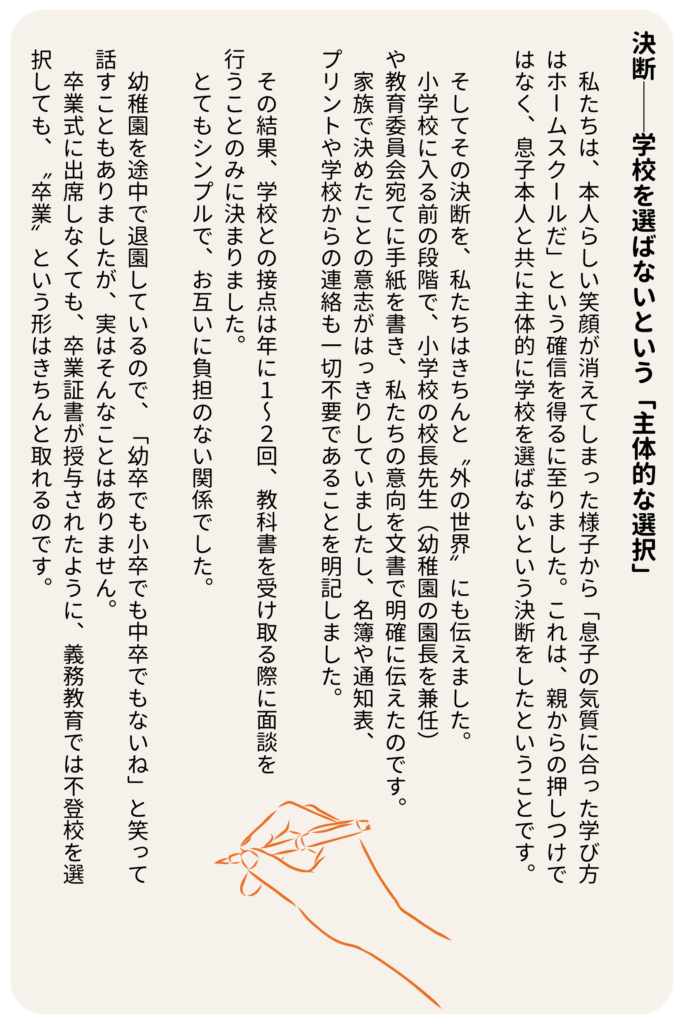 決断――学校を選ばないという「主体的な選択」
私たちは、本人らしい笑顔が消えてしまった様子から「息子の気質に合った学び方
はホームスクールだ」という確信を得るに至りました。これは、親からの押しつけで
はなく、息子本人と共に主体的に学校を選ばないという決断をしたということです。
そしてその決断を、私たちはきちんと〝外の世界〟にも伝えました。
小学校に入る前の段階で、小学校の校長先生（幼稚園の園長を兼任）
や教育委員会宛てに手紙を書き、私たちの意向を文書で明確に伝えたのです。
家族で決めたことの意志がはっきりしていましたし、名簿や通知表、
プリントや学校からの連絡も一切不要であることを明記しました。
その結果、学校との接点は年に１～２回、教科書を受け取る際に面談を
行うことのみに決まりました。
とてもシンプルで、お互いに負担のない関係でした。
幼稚園を途中で退園しているので、「幼卒でも小卒でも中卒でもないね」と笑って
話すこともありましたが、実はそんなことはありません。
卒業式に出席しなくても、卒業証書が授与されたように、義務教育では不登校を選
択しても、〝卒業〟という形はきちんと取れるのです。